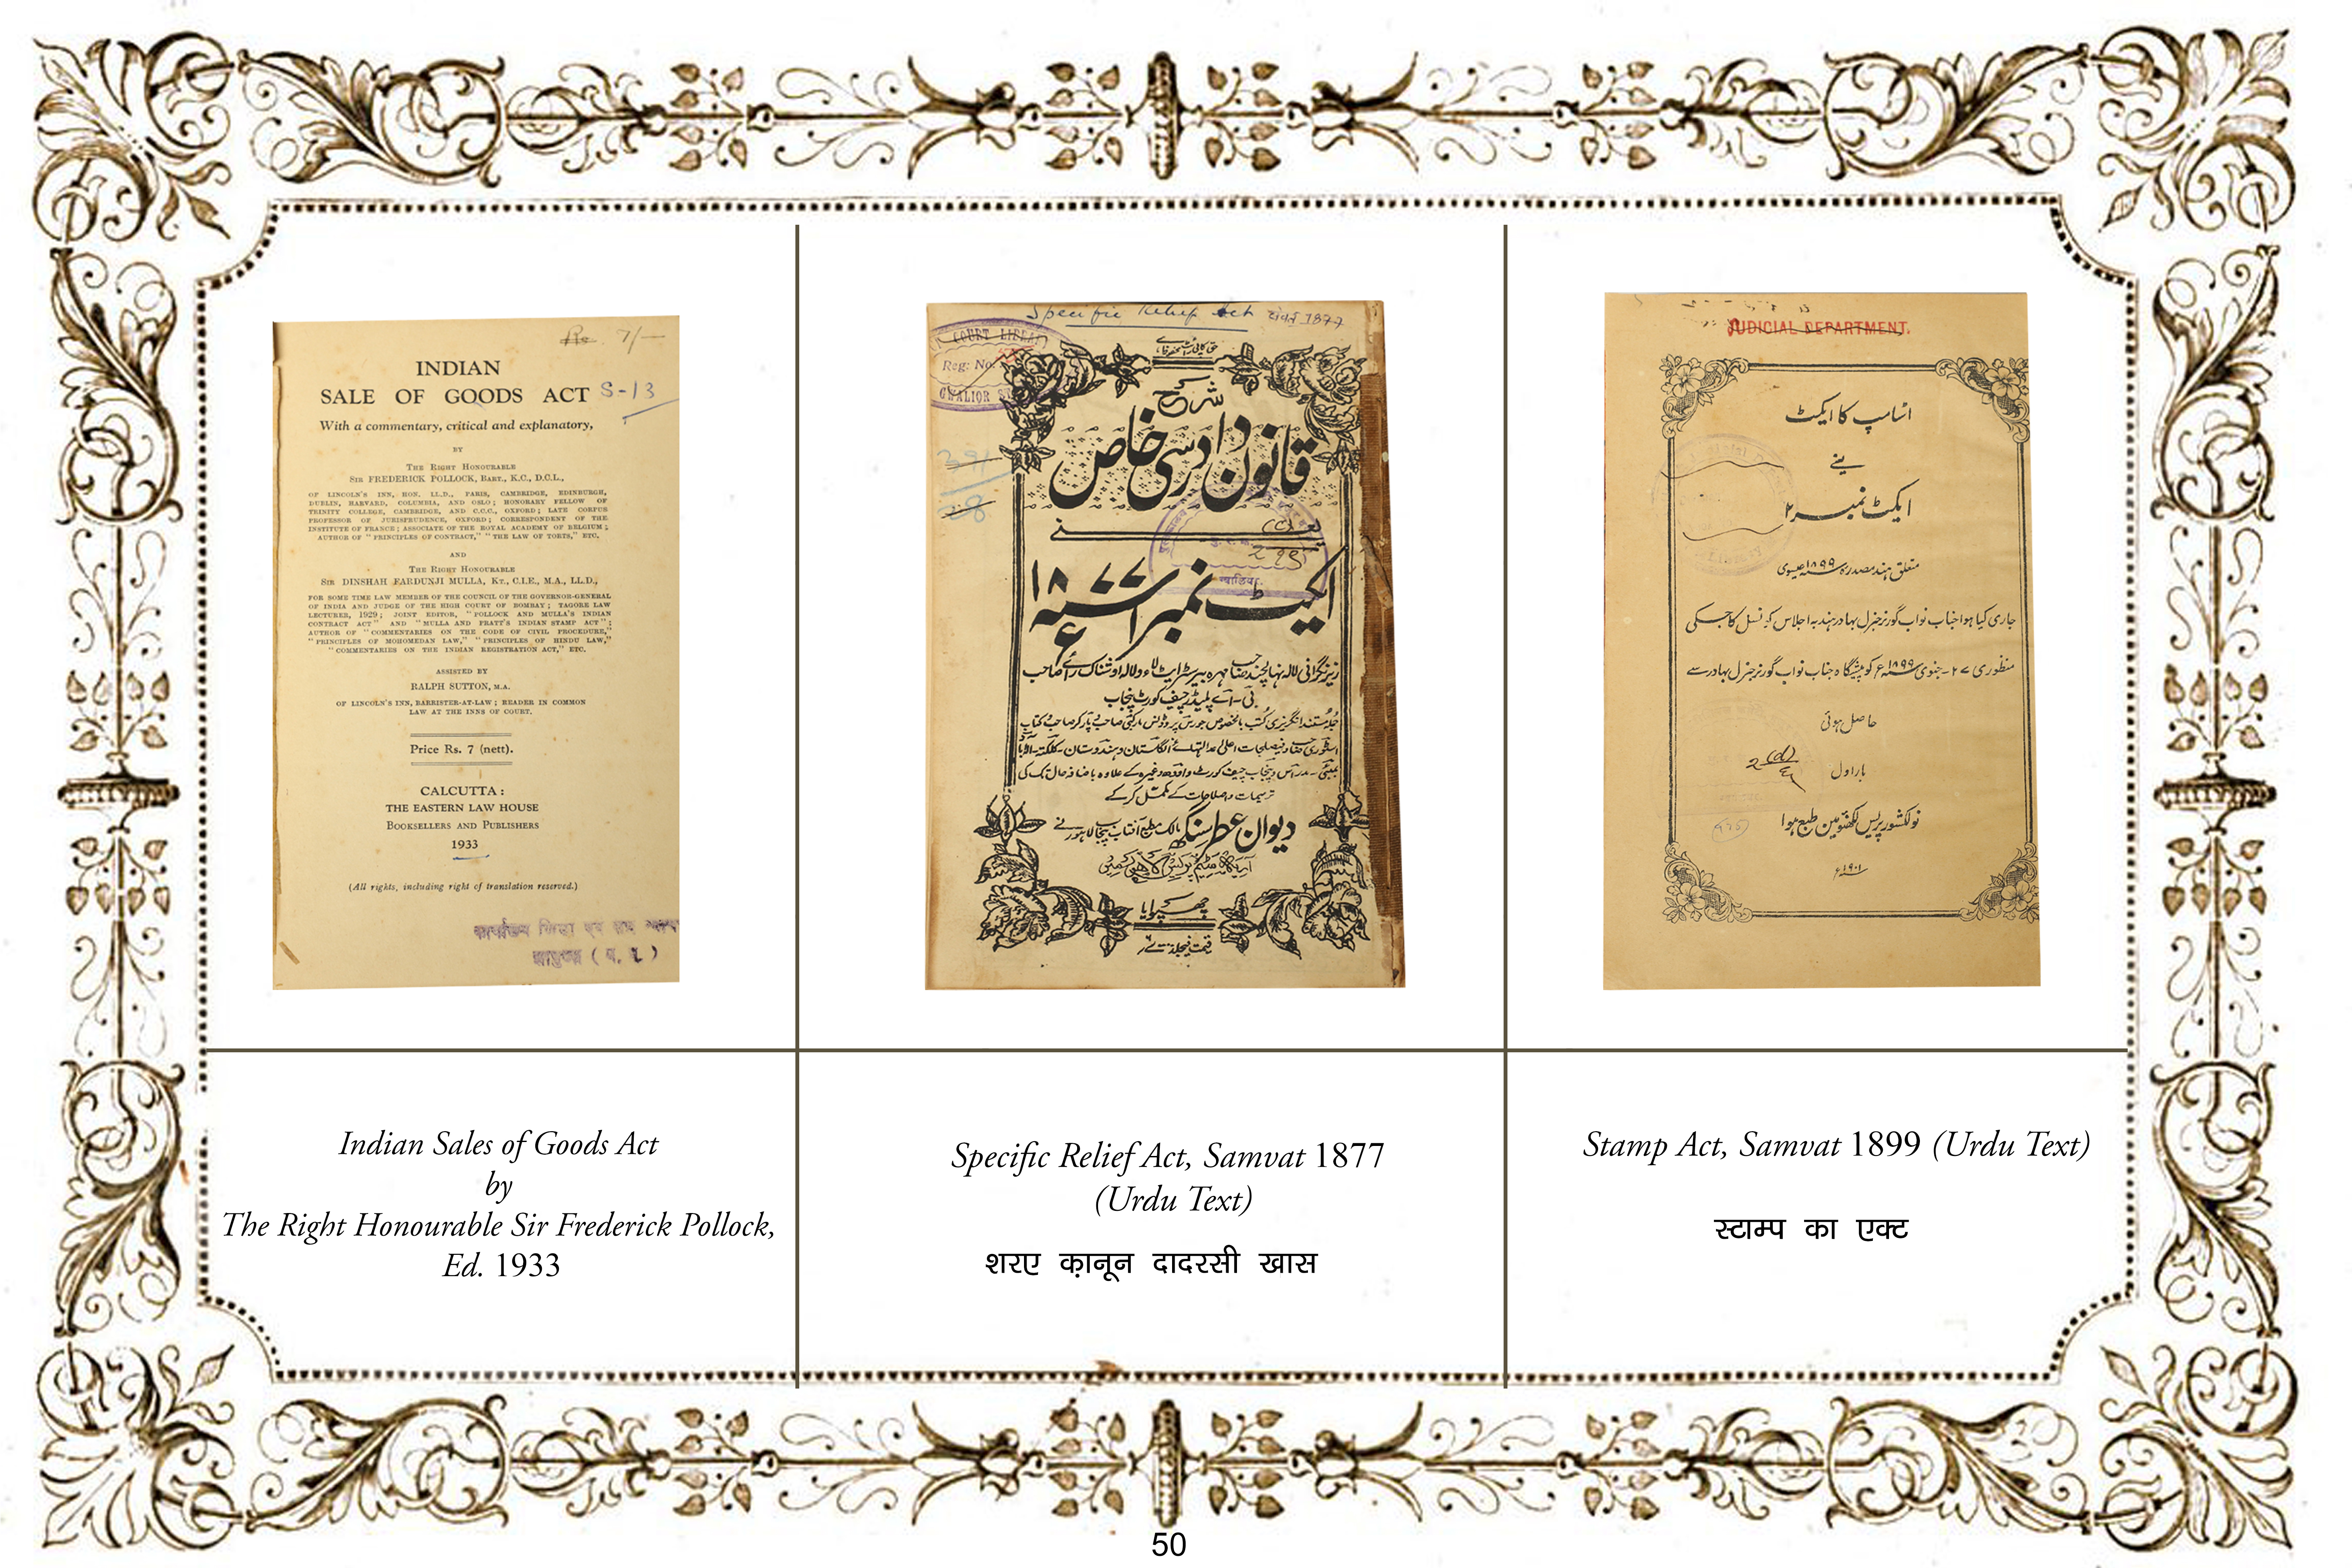 Rs. 7/-
INDIAN
SALE OF GOODS ACT S-13
With a commentary, critical and explanatory,
BY
THE RIGHT HONOURABLE
SIR FREDERICK POLLOCK, BART., K.C., D.C.L.,
OF LINCOLN'S INN, HON. LL.D., PARIS, CAMBRIDGE, EDINBURGH,
DUBLIN, HARVARD, COLUMBIA, AND OSLO; HONORARY FELLOW OF
TRINITY COLLEGE, CAMBRIDGE, AND C.C.C., OXFORD; LATE CORPUS
PROFESSOR OF JURISPRUDENCE, OXFORD; CORRESPONDENT OF THE
INSTITUTE OF FRANCE; ASSOCIATE OF THE ROYAL ACADEMY OF BELGIUM;
AUTHOR OF "PRINCIPLES OF CONTRACT," "THE LAW OF TORTS," ETC.
AND
THE RIGHT HONOURABLE
SIR DINSHAH FARDUNJI MULLA, KT., C.I.E., M.A., LL.D.,
FOR SOME TIME LAW MEMBER OF THE COUNCIL OF THE GOVERNOR-GENERAL
OF INDIA AND JUDGE OF THE HIGH COURT OF BOMBAY; TAGORE LAW
LECTURER, 1929; JOINT EDITOR, "POLLOCK AND MULLA'S INDIAN
CONTRACT ACT" AND "MULLA AND PRATT'S INDIAN STAMP ACT";
AUTHOR OF "COMMENTARIES ON THE CODE OF CIVIL PROCEDURE,"
"PRINCIPLES OF MOHOMEDAN LAW," "PRINCIPLES OF HINDU LAW,"
"COMMENTARIES ON THE INDIAN REGISTRATION ACT," ETC.
ASSISTED BY
RALPH SUTTON, M.A.
OF LINCOLN'S INN, BARRISTER-AT-LAW; READER IN COMMON
LAW AT THE INNS OF COURT.
Price Rs. 7 (nett).
CALCUTTA:
THE EASTERN LAW HOUSE
BOOKSELLERS AND PUBLISHERS
1933
(All rights, including right of translation reserved.)
Specific Relief Act संवत 1877
COURT LIBRA
Reg: No.
GWALIOR
شرح
قانون دادرسی خاص
یعنے
ایکٹ نمبر ۱ سنہ ۱۸۷۷ء
دیوان عطر سنگھ
چھپوایا
JUDICIAL DEPARTMENT.
اسٹامپ کا ایکٹ
یعنے
ایکٹ نمبر ۲
متعلق ہند مصدرہ سنہ ۱۸۹۹ عیسوی
جاری کیا ہوا جناب نواب گورنر جنرل بہادر ہند بہ اجلاس کونسل کا جسکی
منظوری ۲۷ - جنوری سنہ ۱۸۹۹ع کو پیشگاہ جناب نواب گورنر جنرل بہادر سے
حاصل ہوئی
بار اول
نولکشور پریس لکھنؤ مین طبع ہوا
سنہ ۱۹۰۱ع
Indian Sales of Goods Act
by
The Right Honourable Sir Frederick Pollock,
Ed. 1933
Specific Relief Act, Samvat 1877
(Urdu Text)
शरए क़ानून दादरसी खास
Stamp Act, Samvat 1899 (Urdu Text)
स्टाम्प का एक्ट
50